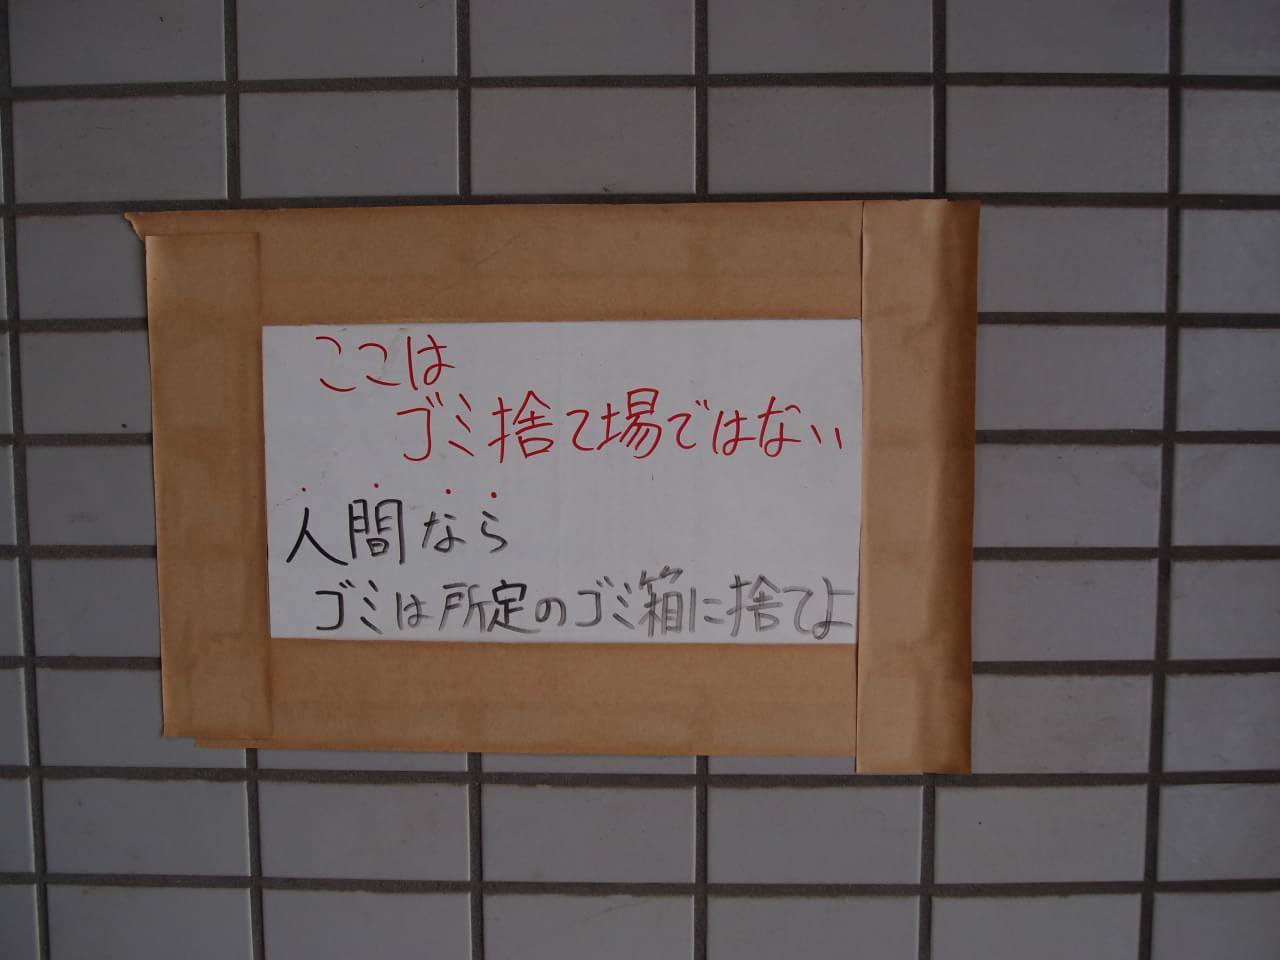 ここは
ゴミ捨て場ではない
人間なら
ゴミは所定のゴミ箱に捨てよ